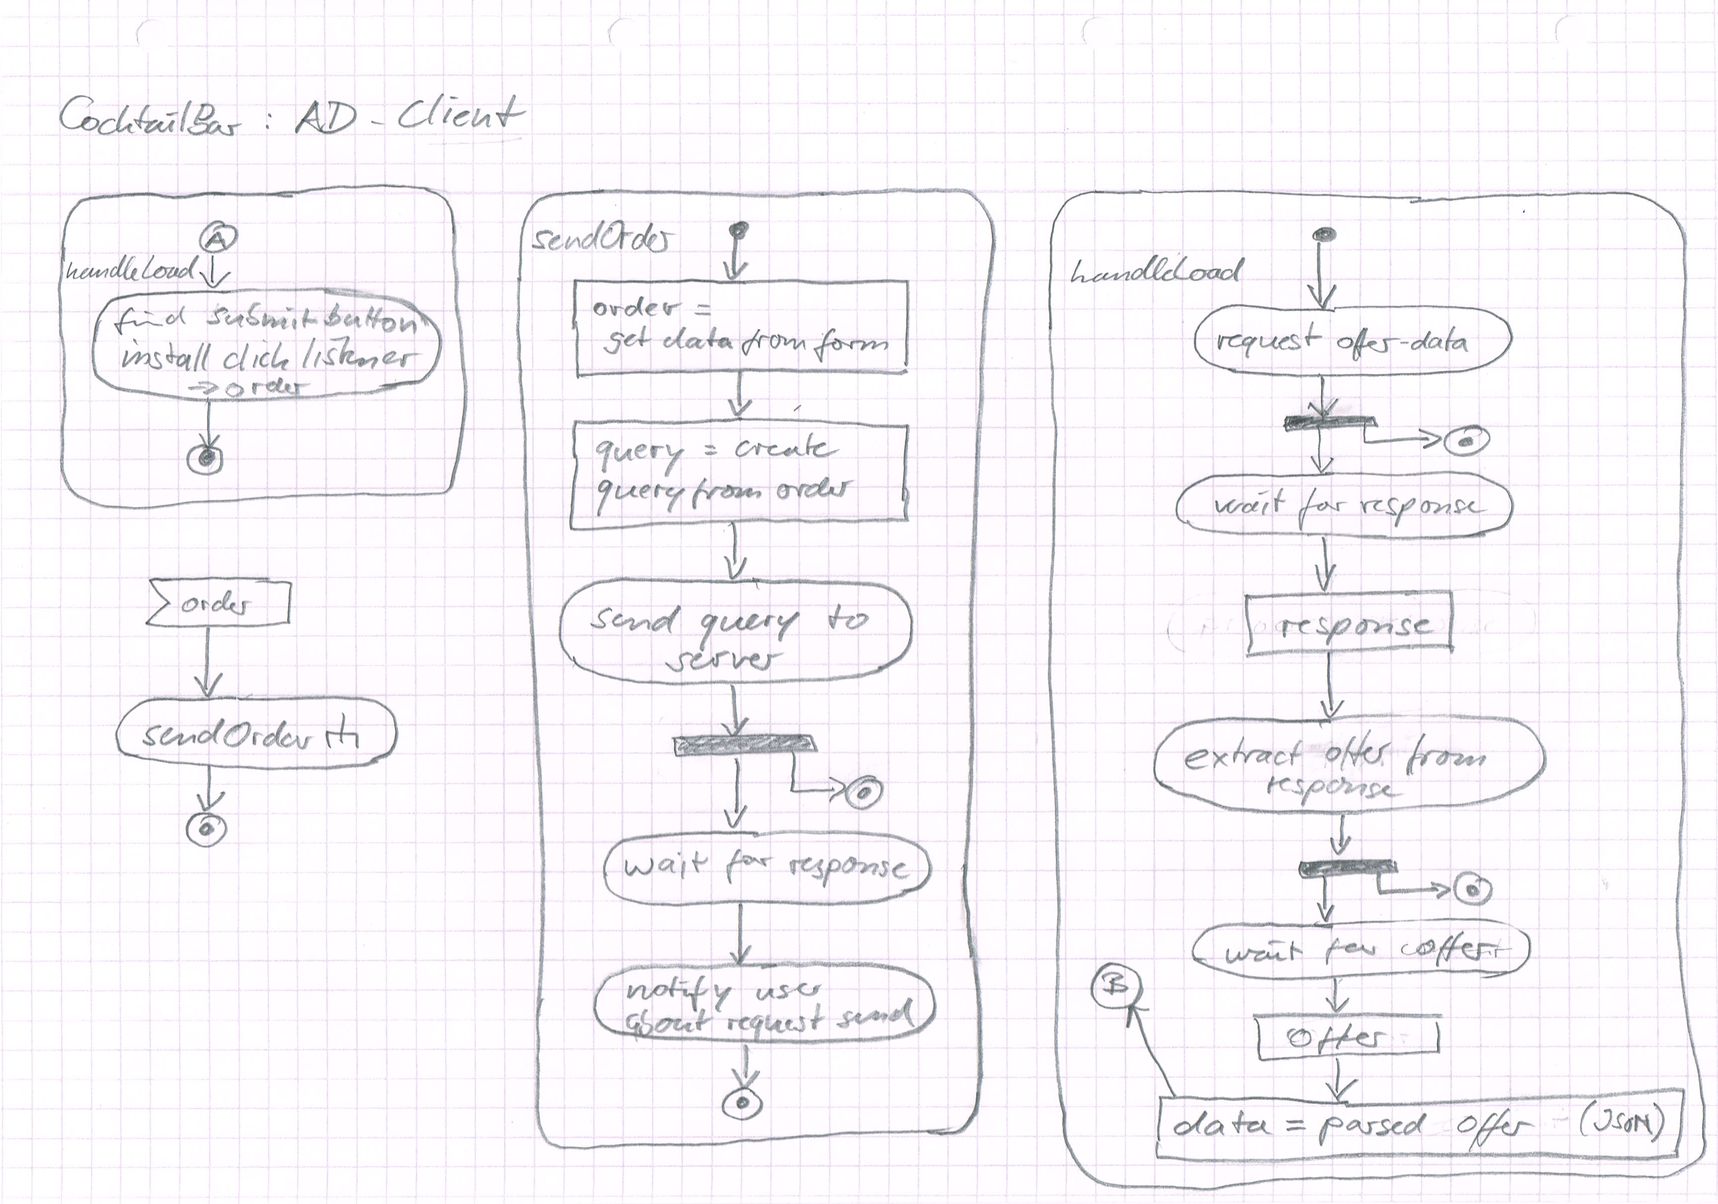 CocktailBar : AD - Client
A
handleLoad
find submit-button
install click listener
→ order
order
sendOrder
sendOrder
order =
get data from form
query = create
query from order
send query to
server
wait for response
notify user
about request send
handleLoad
request offer-data
wait for response
response
extract offer from
response
wait for
B
offer
data = parsed offer - (JSON)